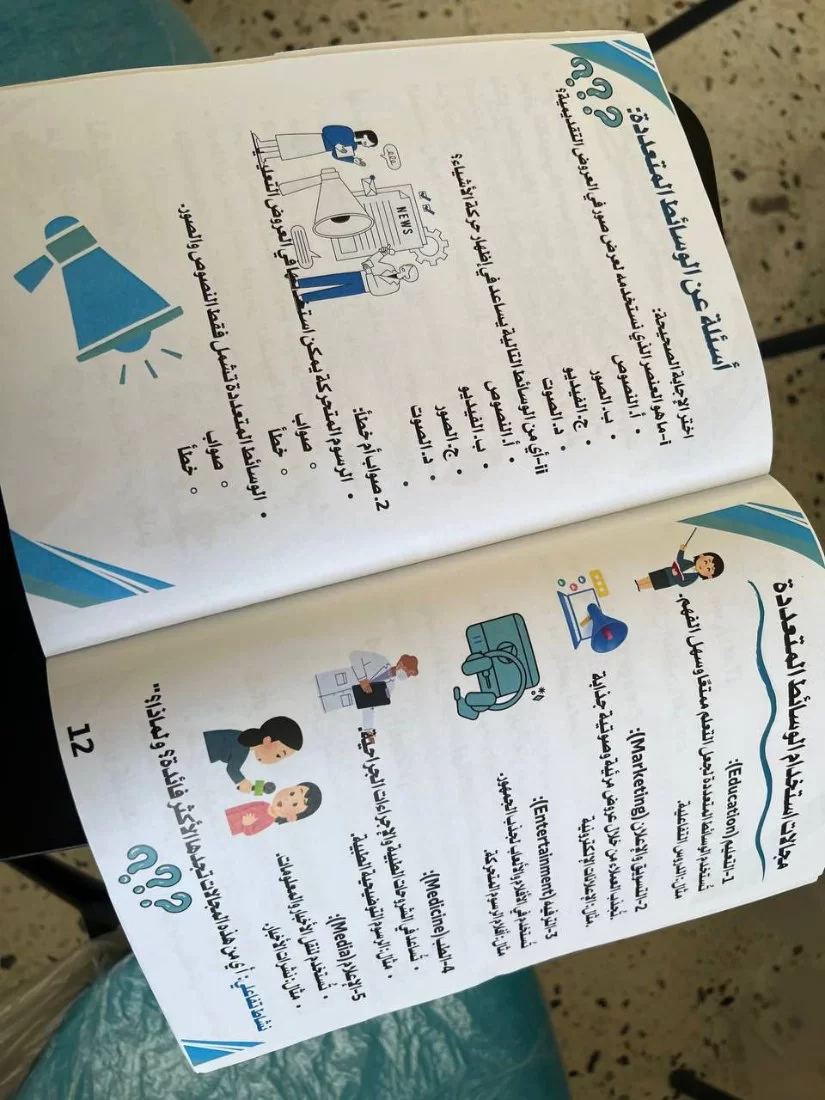 مجالات استخدام الوسائط المتعددة
1-التعليم (Education):
تُستخدم الوسائط المتعددة لجعل التعلم ممتعًا وسهل الفهم.
مثال: الدروس التفاعلية.
2-التسويق والإعلان (Marketing):
تُجذب العملاء من خلال عروض مرئية وصوتية جذابة
مثال: الإعلانات الإلكترونية.
3-الترفيه (Entertainment):
تُستخدم في الأفلام والألعاب لجذب الجمهور.
مثال: أفلام الرسوم المتحركة.
4-الطب (Medicine):
• تُساعد في الشروحات الطبية والإجراءات الجراحية.
• مثال: الرسوم التوضيحية الطبية.
5-الإعلام (Media):
• تُستخدم لنقل الأخبار والمعلومات.
• مثال: نشرات الأخبار.
نشاط تفاعلي: أي من هذه المجالات تجدها الأكثر فائدة؟ ولماذا؟"
???
12
أسئلة عن الوسائط المتعددة:
???
اختر الإجابة الصحيحة:
i-ما هو العنصر الذي نستخدمه لعرض صور في العروض التقديمية؟
• أ. النصوص
• ب. الصور
• ج. الفيديو
• د. الصوت
ii-أي من الوسائط التالية يساعد في إظهار حركة الأشياء؟
• أ. النصوص
• ب. الفيديو
• ج. الصور
• د. الصوت
NEWS
2. صواب أم خطأ:
• الرسوم المتحركة يمكن استخدامها في العروض
○ صواب
○ خطأ
• الوسائط المتعددة تشمل فقط النصوص والصور.
○ صواب
○ خطأ